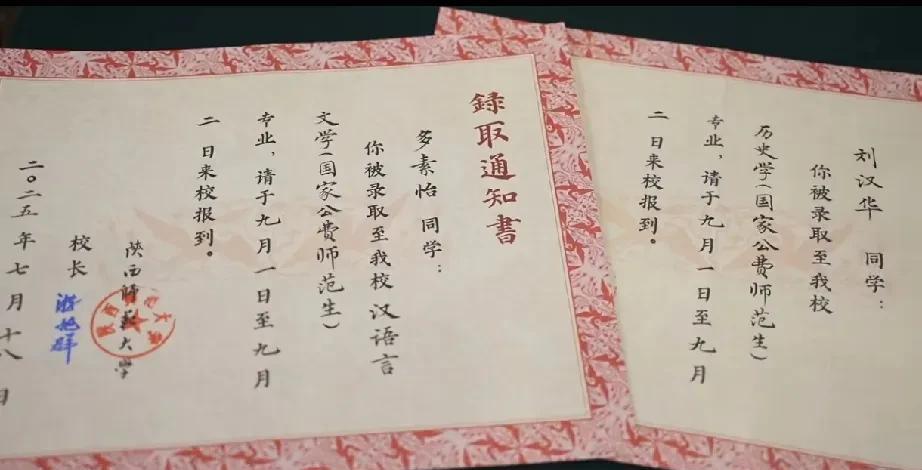 錄取通知書
多素怡 同学：
你被录取至我校 汉语言
文学（国家公费师范生）
专业，请于九月一日至九月
二 日来校报到。
陕西师范大学
校长
二〇二五年七月十八日
刘汉华 同学：
你被录取至我校
历史学（国家公费师范生）
专业，请于九月一日至九月
二 日来校报到。